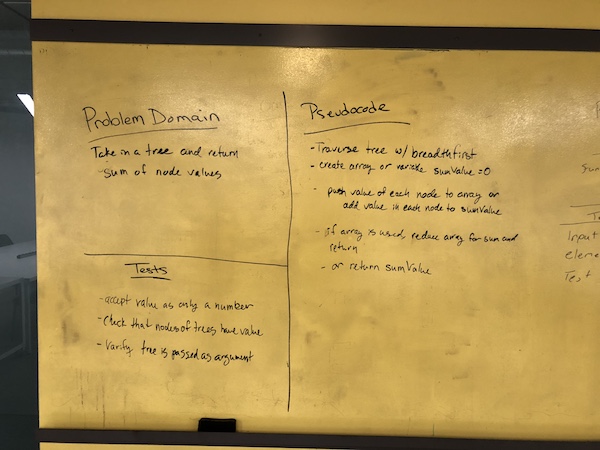 Problem Domain
Take in a tree and return
sum of node values
Tests
- accept value as only a number
- Check that nodes of trees have value
- Varify tree is passed as argument
Pseudocode
- Traverse tree w/ breadthfirst
- create array or variable sumValue = 0
- push value of each node to array or
add value in each node to sumValue
- if array is used, reduce array for sum and
return
- or return sumValue
P
Sum
T
Input
eleme
Test